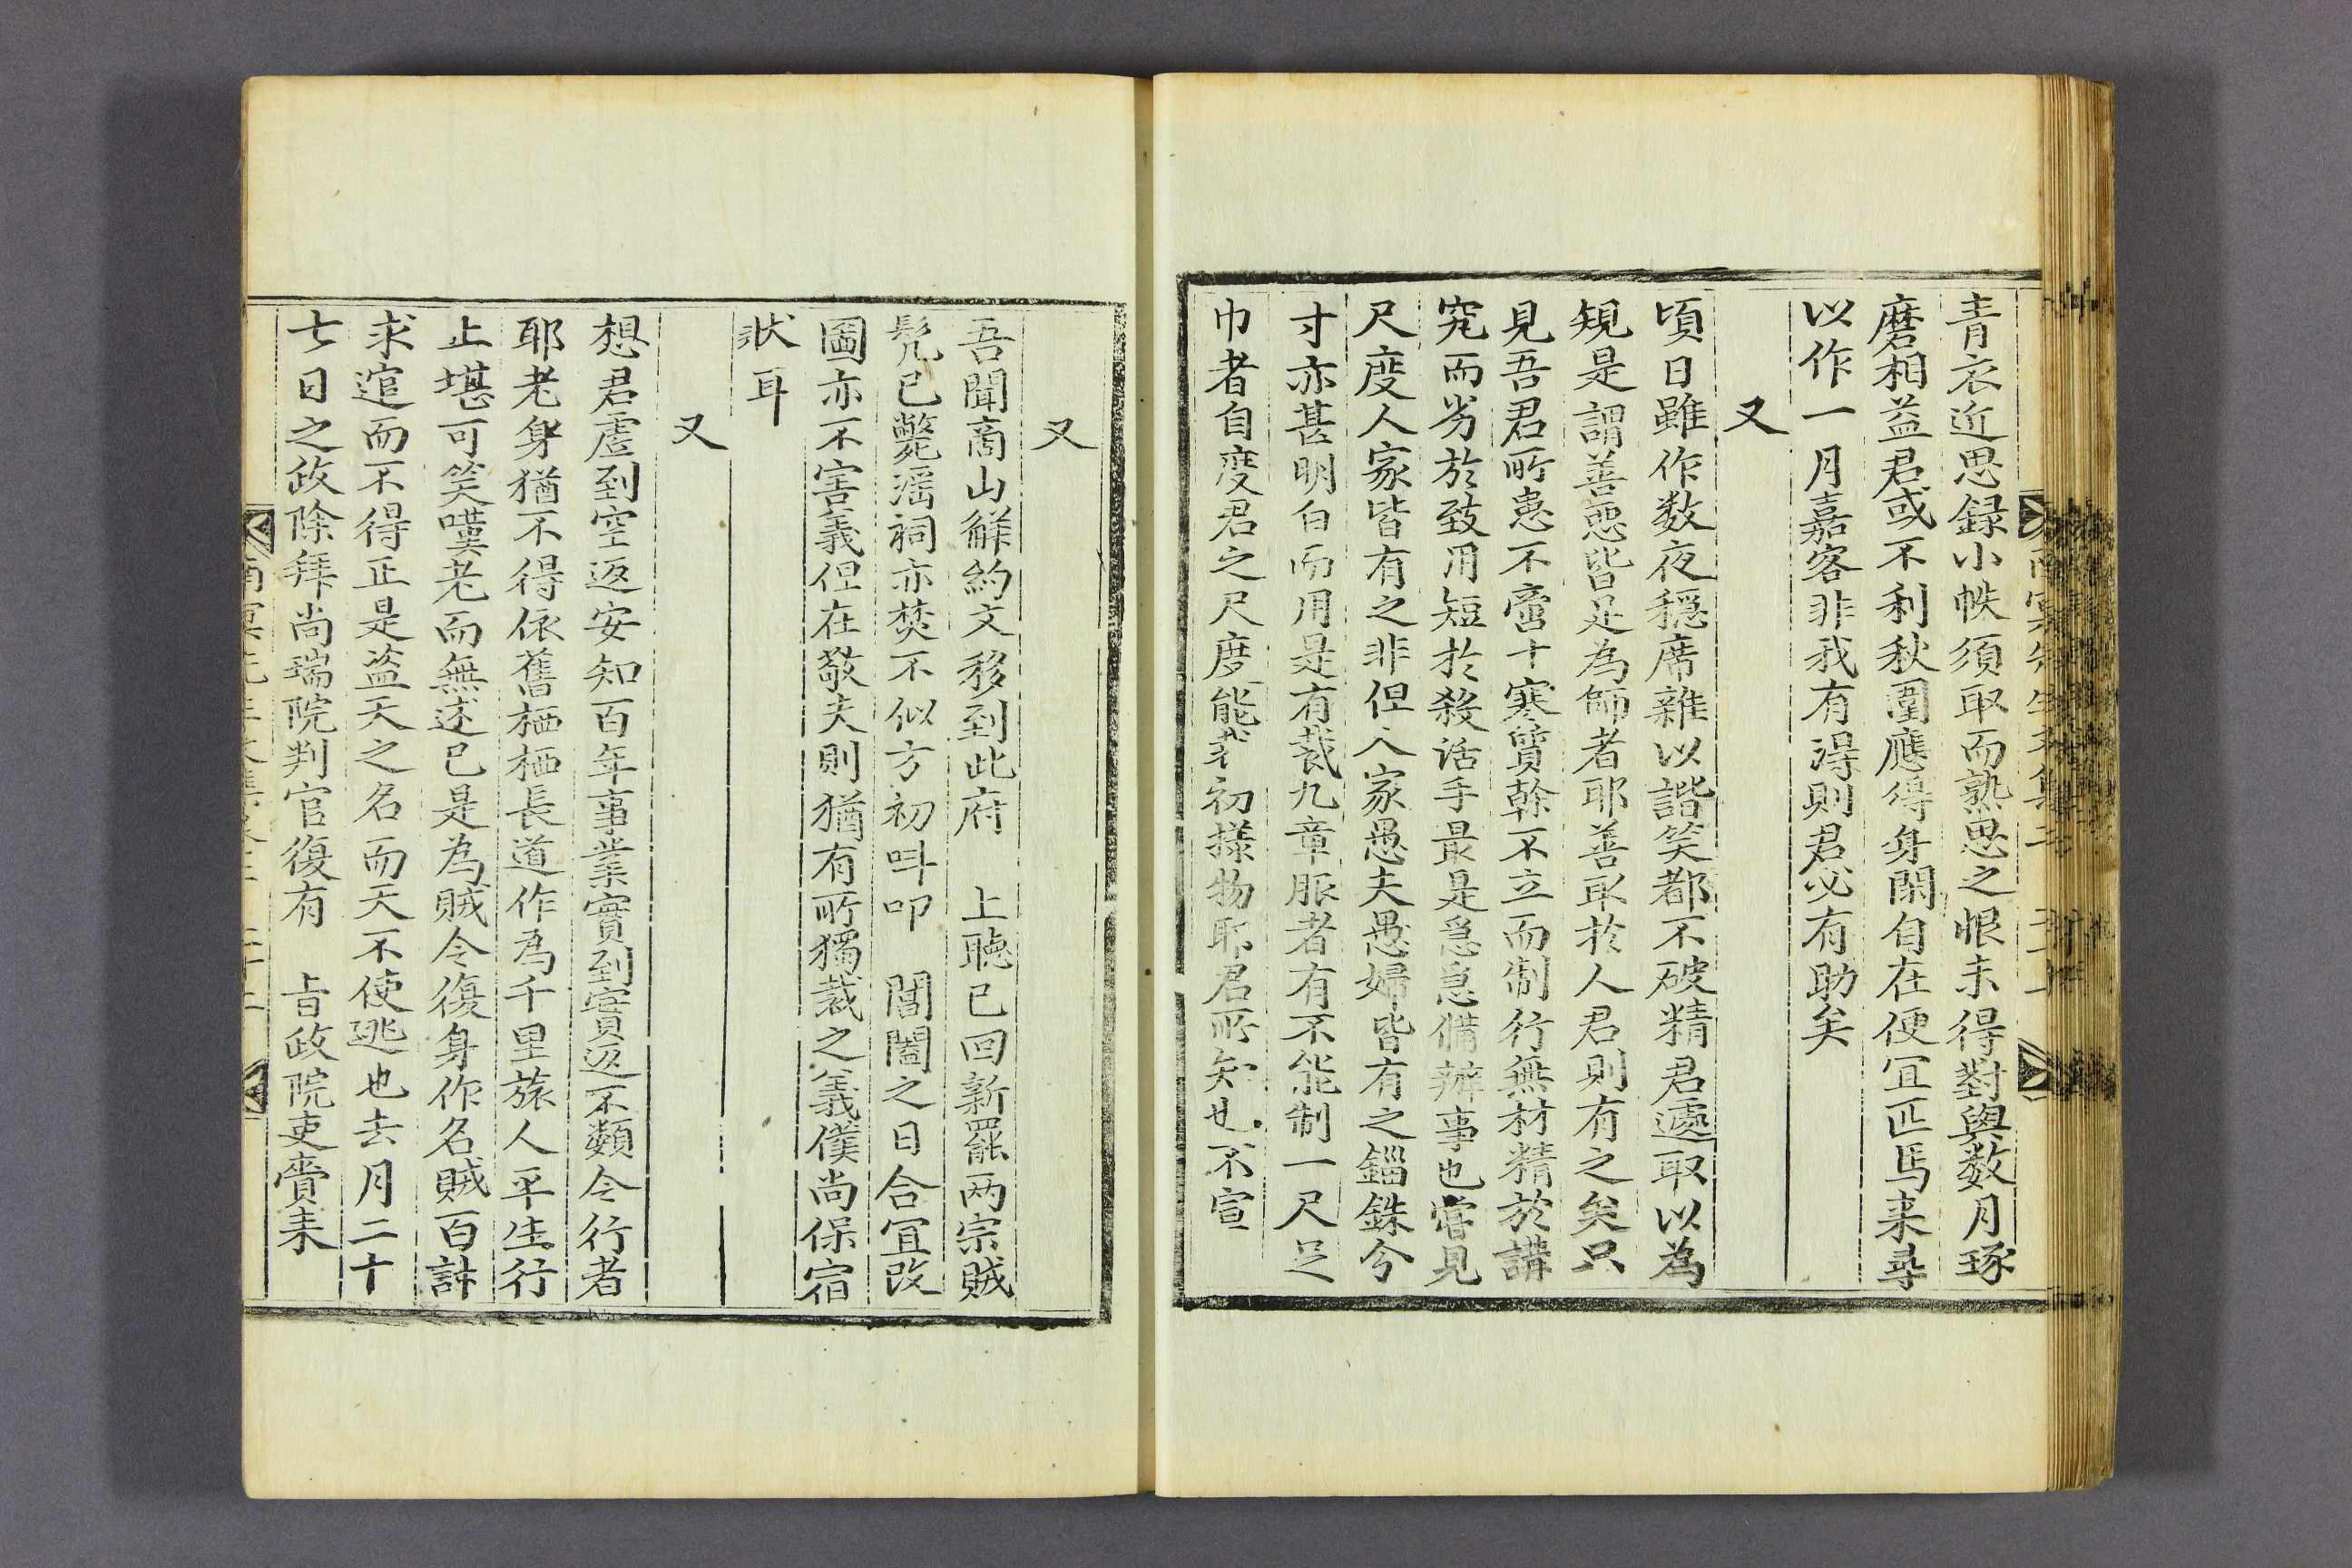 青衣近思録小帙須取而熟思之恨未得對與数月琢
磨相益君或不利秋圍應得身閑自在便冝匹馬来尋
以作一月嘉客非我有淂則君必有助矣
又
頃日雖作数夜穏席雜以諧笑都不破精君遽取以為
規是謂善惡皆足為師者耶善取於人君則有之矣只
見吾君所患不啻十寒質幹不立而制行無材精於講
究而劣於致用短於殺活手最是急急備辦事也嘗見
尺度人家皆有之非但人家愚夫愚婦皆有之錙銖分
寸亦甚明白而用是有裁九章服者有不能制一尺足
巾者自度君之尺度能裁初㨾物耶君所知也不宣
又
吾聞商山鮮約文移到此府　上聽已回新罷两宗賊
髡已斃滛祠亦焚不似方初呌叩　閶闔之日合冝改
圖亦不害義但在敬夫則猶有所獨裁之義僕尚保宿
狀耳
又
想君虛到空返安知百年事業實到實返不類今行者
耶老身猶不得依舊栖栖長道作為千里旅人平生行
止堪可笑嘆老而無述已是為賊今復身作名賊百計
求逭而不得正是盗天之名而天不使逃也去月二十
七日之政除拜尚瑞院判官復有　旨政院吏賫来